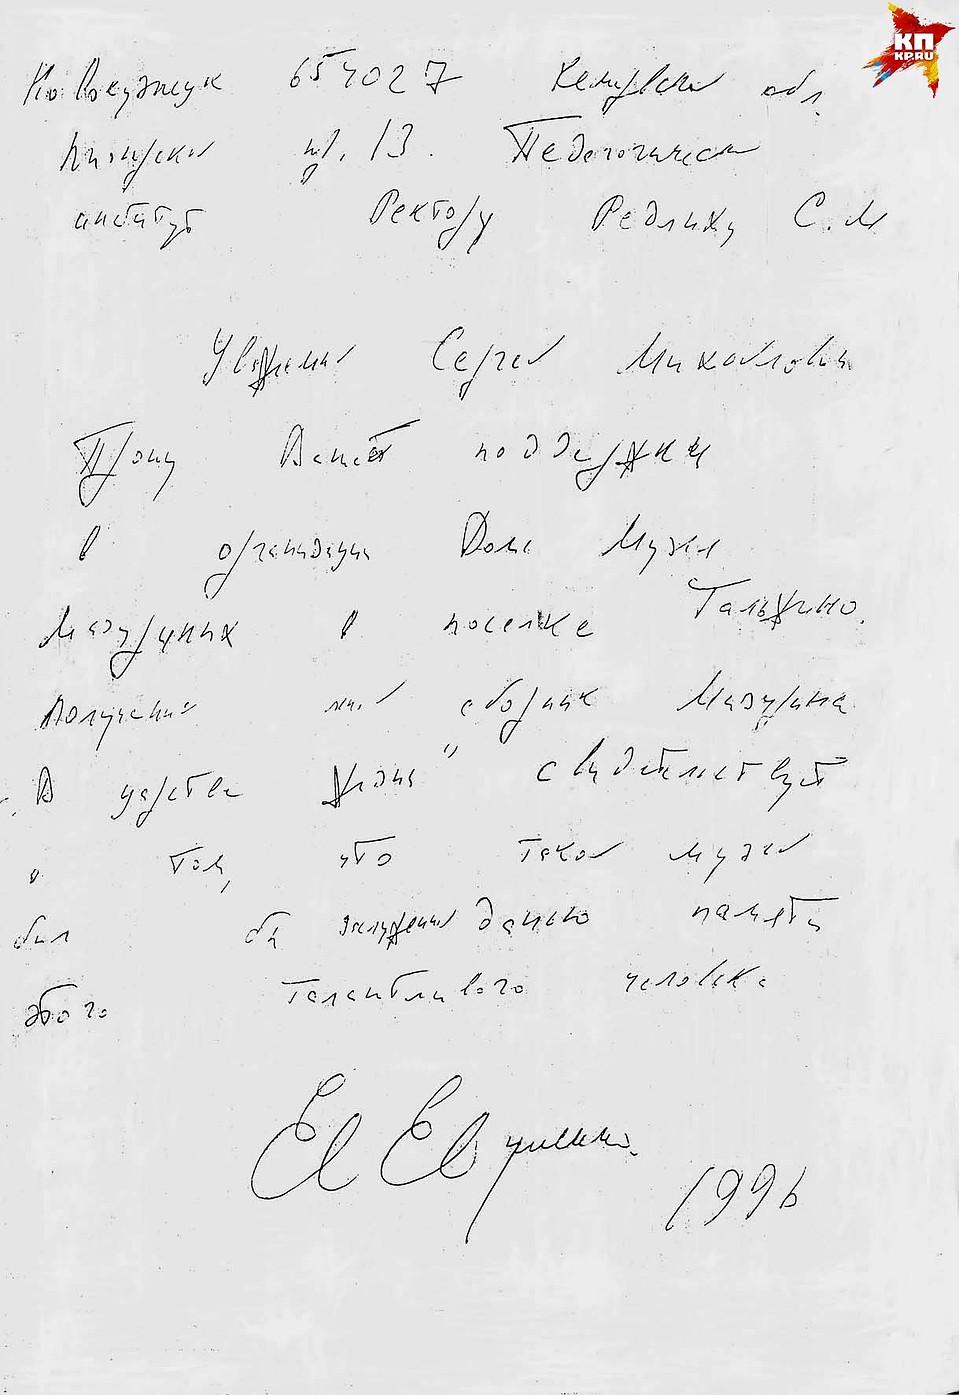 КП
KP.RU
Новокузнецк 654027 Кемеровская обл.
Пионерский пр. 13. Педагогический
институт Ректору Редлиху С. М
Уважаемый Сергей Михайлович
Прошу Вашей поддержки
в организации Дома Музея
Мазуриных в поселке Тальжино.
Полученный мной сборник Мазурина
„В царстве жизни" свидетельствует
о том, что такой музей
был бы заслуженной данью памяти
этого талантливого человека
Ев Евтушенко.
1996